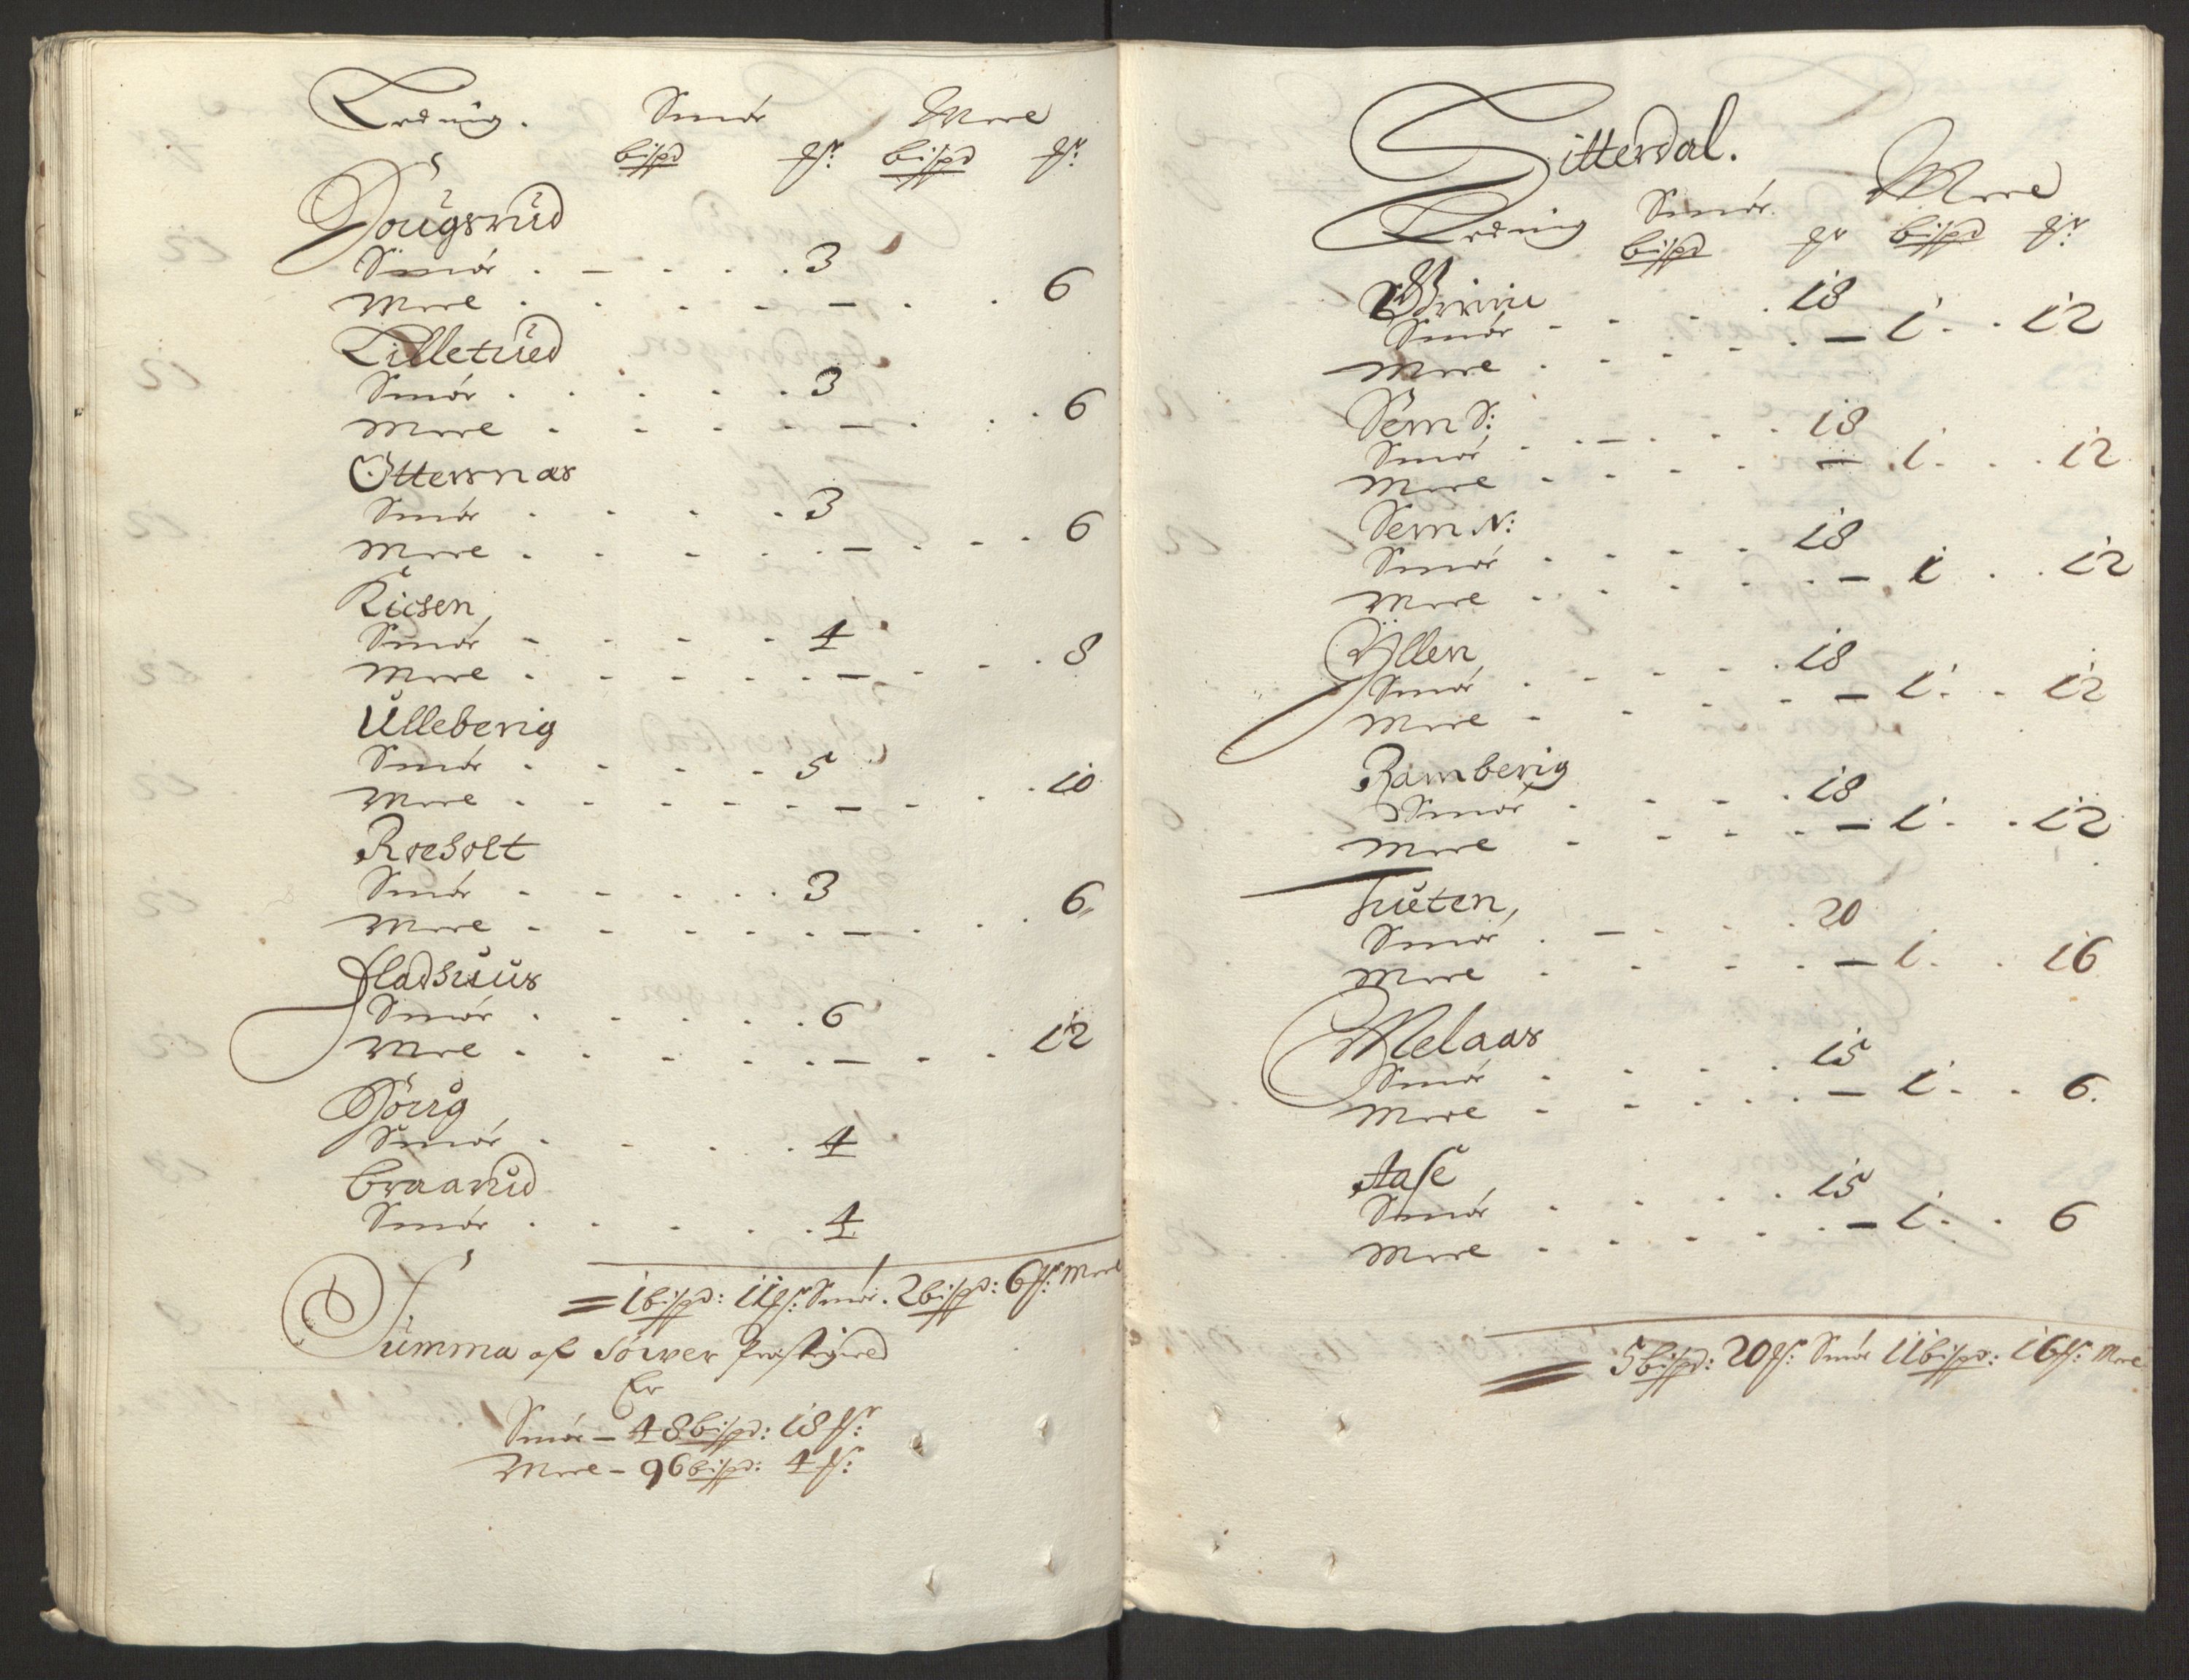 Leding. Smör Meel
bispd ℔: bispd ℔:
Hougsrud
Smör . – . . . . 3
Meel . . . . . – . . 6
Lilletued
Smör . . . . . 3
Meel . . . . – . . . 6
Ottersnas
Smör . . . . 3
Meel . . . . . – . . . 6
Kiosen
Smör - - - - 4
Meel . . . . . – . . . 8
Ulleberig
Smör . . . . 5
Meel . . . . . – . . . 10
Roeholt
Smör . . . . . 3
Meel . . . . . – . . . 6
Fladhuus
Smör . . . . . 6
Meel . . . . . – . . . 12
Hörig
Smör . . . . 4
Braarud
Smör . . . . . 4
= 1 bispd: 11 ℔: Smör. 2 bispd: 6 ℔: Meel
Summa af Söwer Prestigield
Er
Smör – 48 bispd: 18 ℔:
Meel – 96 bispd: 4 ℔:
Hitterdal.
Leding Smör. Meel
bispd ℔ bispd ℔:
Smör . . . . 18
Meel . . . . . – 1 . . 12
Sem S:
Smör . . – . . . 18
Meel . . . . – 1 . . . 12
Sem N:
Smör . . . . 18
Meel . . . . . – 1 . . 12
Yllen
Smör . . . . . 18
Meel . . . . – 1 . . 12
Ramberig
Smör . . . . 18
Meel . . . . – 1 . . 12
Tueten,
Smör . – . . . 20
Meel . . . . . – 1 . . 16
Melaas
Smör . . . . 15
Meel . . . . . – 1 . . 6.
Aase
Smör . . . . . 15
Meel . . . . . – 1 . . 6
= 5 bispd: 20 ℔: Smör 11 bispd: 16 ℔: Meel